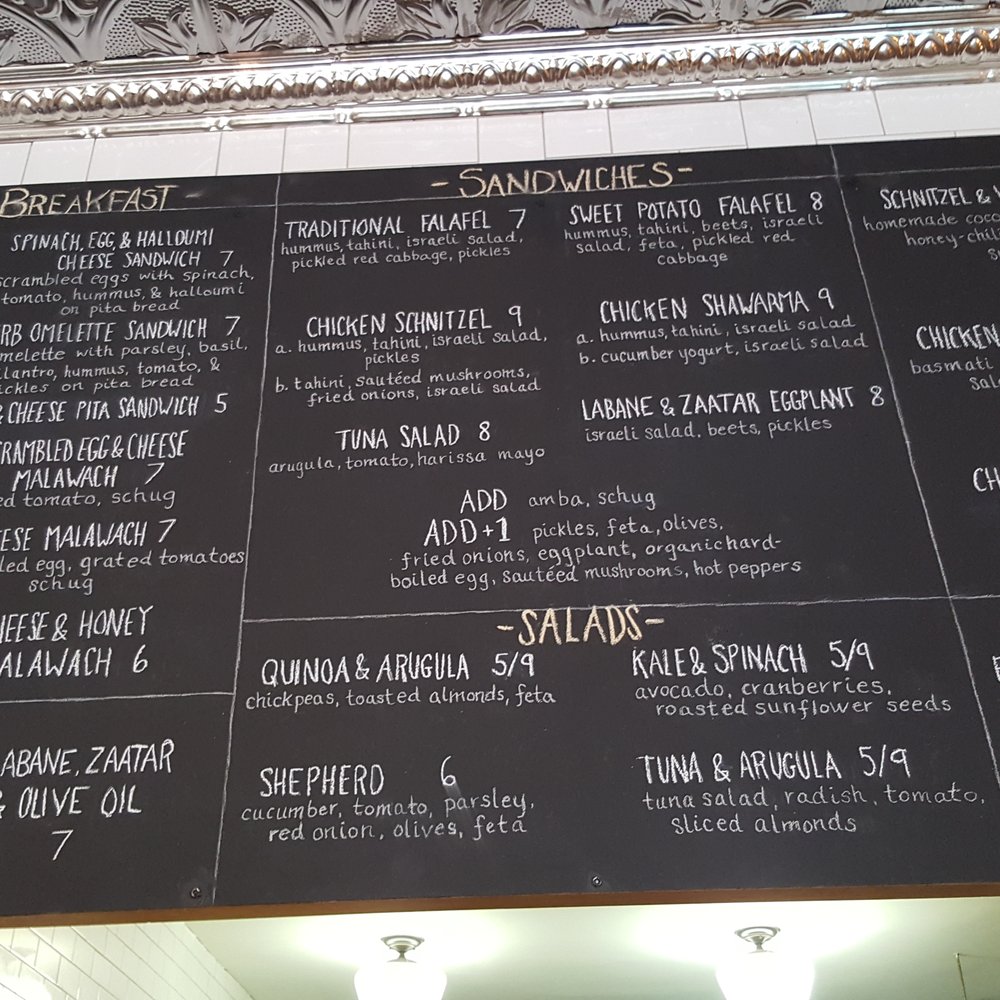 BREAKFAST -
SPINACH, EGG, & HALLOUMI
CHEESE SANDWICH 7
scrambled eggs with spinach,
tomato, hummus, & halloumi
on pita bread
OMELETTE SANDWICH 7
with parsley, basil,
hummus, tomato, &
on pita bread
& CHEESE PITA SANDWICH 5
EGG & CHEESE
MALAWACH 7
tomato, schug
MALAWACH 7
egg, grated tomatoes
schug
& HONEY
6
ZAATAR
& OLIVE OIL
7
- SANDWICHES -
TRADITIONAL FALAFEL 7
hummus, tahini, israeli salad,
pickled red cabbage, pickles
CHICKEN SCHNITZEL 9
a. hummus, tahini, israeli salad,
pickles
b. tahini, sautéed mushrooms,
fried onions, israeli salad
TUNA SALAD 8
arugula, tomato, harissa mayo
SWEET POTATO FALAFEL 8
hummus, tahini, beets, israeli
salad, feta, pickled red
cabbage
CHICKEN SHAWARMA 9
a. hummus, tahini, israeli salad
b. cucumber yogurt, israeli salad
LABANE & ZAATAR EGGPLANT 8
israeli salad, beets, pickles
ADD amba, schug
ADD+1 pickles, feta, olives,
fried onions, eggplant, organic hard-
boiled egg, sautéed mushrooms, hot peppers
-SALADS-
QUINOA & ARUGULA 5/9
chickpeas, toasted almonds, feta
SHEPHERD 6
cucumber, tomato, parsley,
red onion, olives, feta
KALE & SPINACH 5/9
avocado, cranberries,
roasted sunflower seeds
TUNA & ARUGULA 5/9
tuna salad, radish, tomato,
sliced almonds
SCHNITZEL &
homemade
CHICKEN
basmati